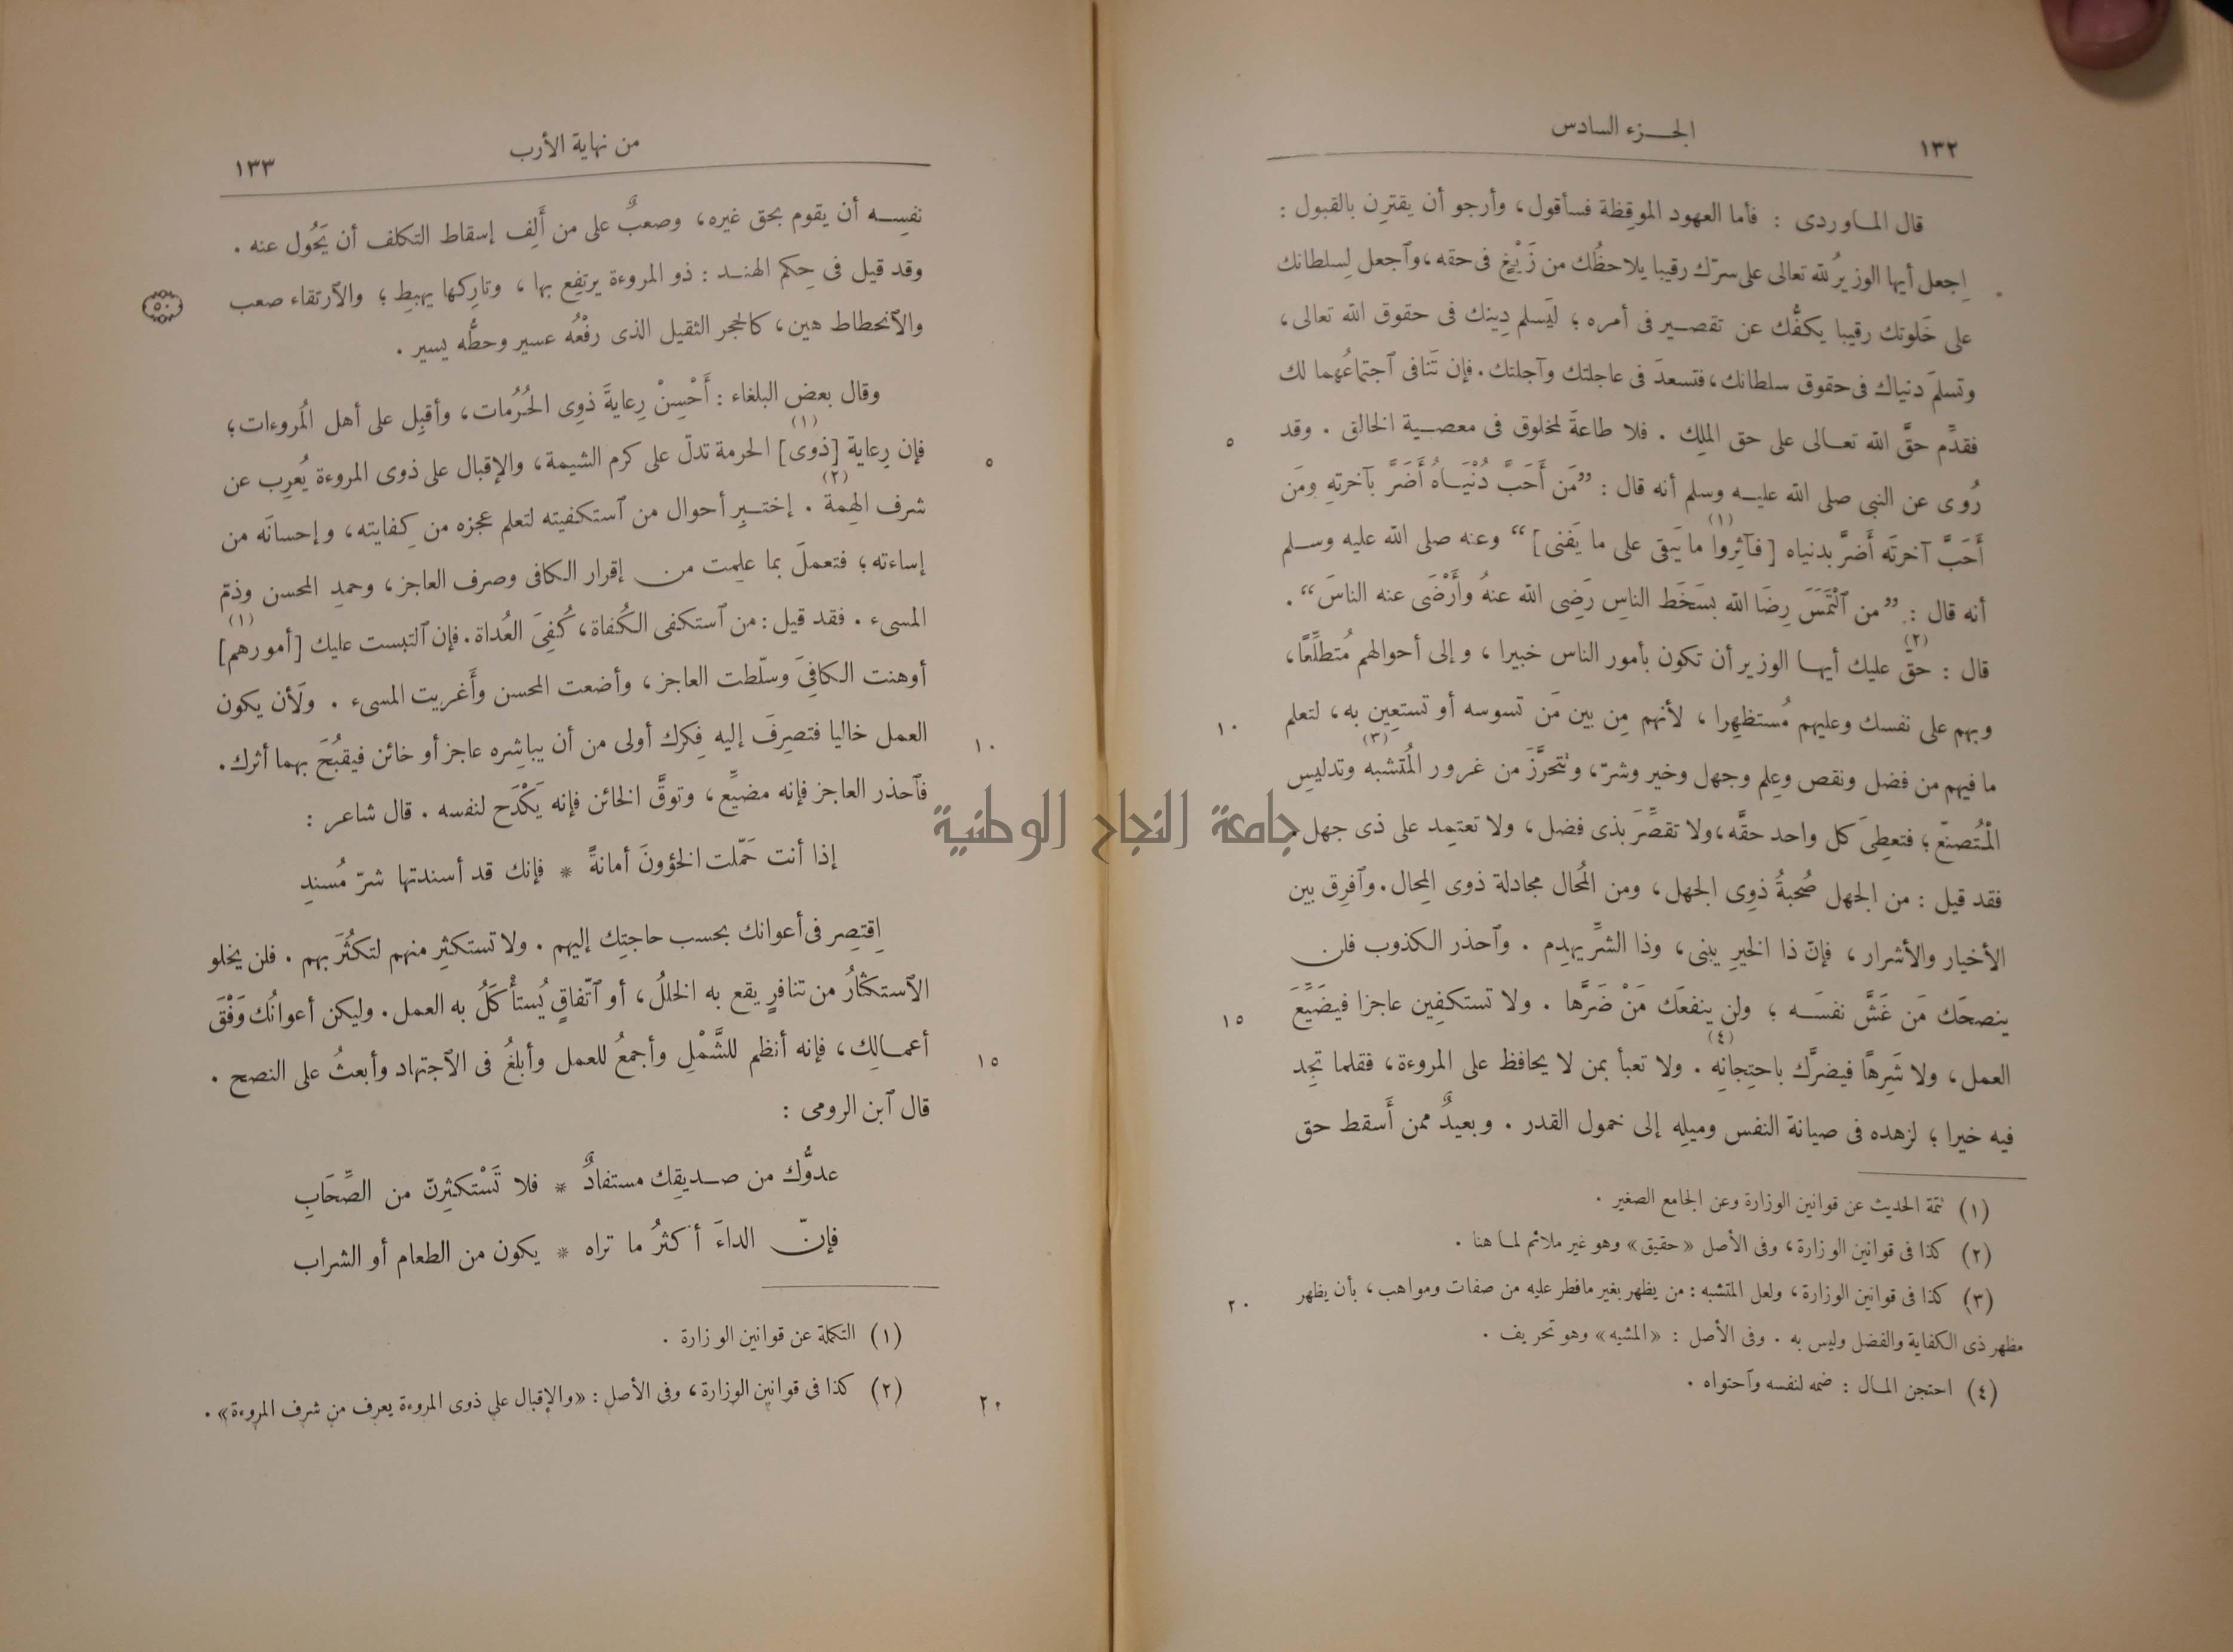 الجزء السادس
١٣٢
قال الماوردى : فأما العهود الموقِظة فسأقول، وأرجو أن يقترِن بالقبول :
اِجعل أيها الوزيرُ لله تعالى على سرّك رقيبا يلاحظُك من زَيْغٍ فى حقه، وٱجعل لِسلطانك
على خَلوتك رقيبا يكفُّك عن تقصير فى أمره ؛ ليَسلم دِينك فى حقوق الله تعالى،
وتسلمَ دنياك فى حقوق سلطانك، فتسعدَ فى عاجلتك وآجلتك. فإن تَنافى ٱجتماعُهما لك
فقدِّم حقَّ الله تعالى على حق الملِك . فلا طاعةَ لمخلوق فى معصية الخالق . وقد
٥
رُوى عن النبى صلى الله عليه وسلم أنه قال : ”مَن أَحَبَّ دُنْيَاهُ أَضَرَّ بآخرتهِ ومَن
أَحَبَّ آخرتَه أَضرَّ بدنياه [فآثِروا ما يَبقى على ما يَفنى] (١)“ وعنه صلى الله عليه وسلم
أنه قال : ”من ٱلْتَمَسَ رِضَا الله بسَخَط الناسِ رَضِى الله عنهُ وأَرْضَى عنه الناسَ“ .
قال : حقّ (٢) عليك أيها الوزير أن تكون بأمور الناس خبيرا ، وإلى أحوالهم مُتطلِّعًا،
وبهم على نفسك وعليهم مُستظهِرا ، لأنهم مِن بين مَن تسوسه أو تستعِين به، لتعلم
١٠
ما فيهم من فضل ونقص وعِلم وجهل وخير وشرّ، وتتحرَّزَ من غرور المُتشبه (٣) وتدليسِ
المُتصنّع ؛ فتعطِىَ كل واحد حقَّه، ولا تقصِّرَ بذى فضل، ولا تعتمِد على ذى جهل .
فقد قيل : من الجهل صُحبةُ ذوِى الجهل، ومن المُحال مجادلة ذوى المِحال. وٱفرِق بين
الأخيار والأشرار ، فإنّ ذا الخيرِ يبنى، وذا الشرِّ يهدِم . وٱحذر الكذوب فلن
ينصحَك مَن غَشَّ نفسَه ؛ ولن ينفعَك مَنْ ضَرَّها . ولا تستكفِين عاجزا فيضَيِّعَ
١٥
العمل، ولا شَرِهًا فيضرَّك باحتِجانِه (٤) . ولا تعبأ بمن لا يحافظ على المروءة، فقلما تجِد
فيه خيرا ؛ لزهده فى صيانة النفس وميلِه إلى خمول القدر . وبعيدٌ ممن أَسقط حق
(١) تتمة الحديث عن قوانين الوزارة وعن الجامع الصغير .
(٢) كذا فى قوانين الوزارة، وفى الأصل «حقيق» وهو غير ملائم لما هنا .
(٣) كذا فى قوانين الوزارة، ولعل المتشبه : من يظهر بغير ما فطر عليه من صفات ومواهب، بأن يظهر
٢٠
مظهر ذى الكفاية والفضل وليس به . وفى الأصل : «المشيه» وهو تحريف .
(٤) احتجن المال : ضمه لنفسه وٱحتواه .
من نهاية الأرب
١٣٣
نفسِه أن يقوم بحق غيره، وصعبٌ على من أَلِف إسقاط التكلف أن يَحُول عنه .
وقد قيل فى حِكم الهند : ذو المروءة يرتفِع بها ، وتارِكها يهبِط ؛ والٱرتقاء صعب
٥٠
والٱنحطاط هين، كالحجر الثقيل الذى رفْعُه عسير وحطُّه يسير .
وقال بعض البلغاء : أَحْسِنْ رِعايةَ ذوِى الحُرُمات، وأقبِل على أهل المُروءات؛
فإن رِعاية [ذوى] (١) الحرمة تدلّ على كرم الشيمة، والإقبال على ذوى المروءة يُعرِب عن
٥
شرف الهِمة (٢) . إختبِر أحوال من ٱستكفيته لتعلم عجزه من كِفايته، وإحسانَه من
إساءته؛ فتعملَ بما علِمت من إقرار الكافى وصرف العاجز، وحمدِ المحسن وذمّ
المسىء . فقد قيل : من ٱستكفى الكُفاة، كُفِىَ العُداة. فإن ٱلتبست عليك [أمورهم] (١)
أوهنت الكافِىَ وسلّطت العاجز، وأضعت المحسن وأَغريت المسىء . ولَأن يكون
العمل خاليا فتصرِفَ إليه فِكرك أولى من أن يباشِره عاجز أو خائن فيقبُحَ بهما أثرك.
١٠
فٱحذر العاجز فإنه مضيِّع، وتوقَّ الخائن فإنه يَكْدَح لنفسه . قال شاعر :
إذا أنت حَمّلت الخؤونَ أمانةً * فإنك قد أسندتها شرّ مُسندِ
اِقتصِر فى أعوانك بحسب حاجتِك إليهم . ولا تستكثِر منهم لتكثُرَ بهم . فلن يخلو
الٱستكثارُ من تنافرٍ يقع به الخللُ، أو ٱتّفاقٍ يُستأْكَلُ به العمل. وليكن أعوانُك وَفْقَ
أعمالِك، فإنه أنظم للشَّمْلِ وأجمعُ للعمل وأبلغُ فى الٱجتهاد وأبعثُ على النصح .
١٥
قال ٱبن الرومى :
عدوُّك من صديقِك مستفادٌ * فلا تَسْتكثِرنّ من الصِّحَابِ
فإنّ الداءَ أكثرُ ما تراه * يكون من الطعام أو الشراب
(١) التكملة عن قوانين الوزارة .
(٢) كذا فى قوانين الوزارة، وفى الأصل : «والإقبال على ذوى المروءة يعرف من شرف المروءة» .
٢٠
جامعة النجاح الوطنية